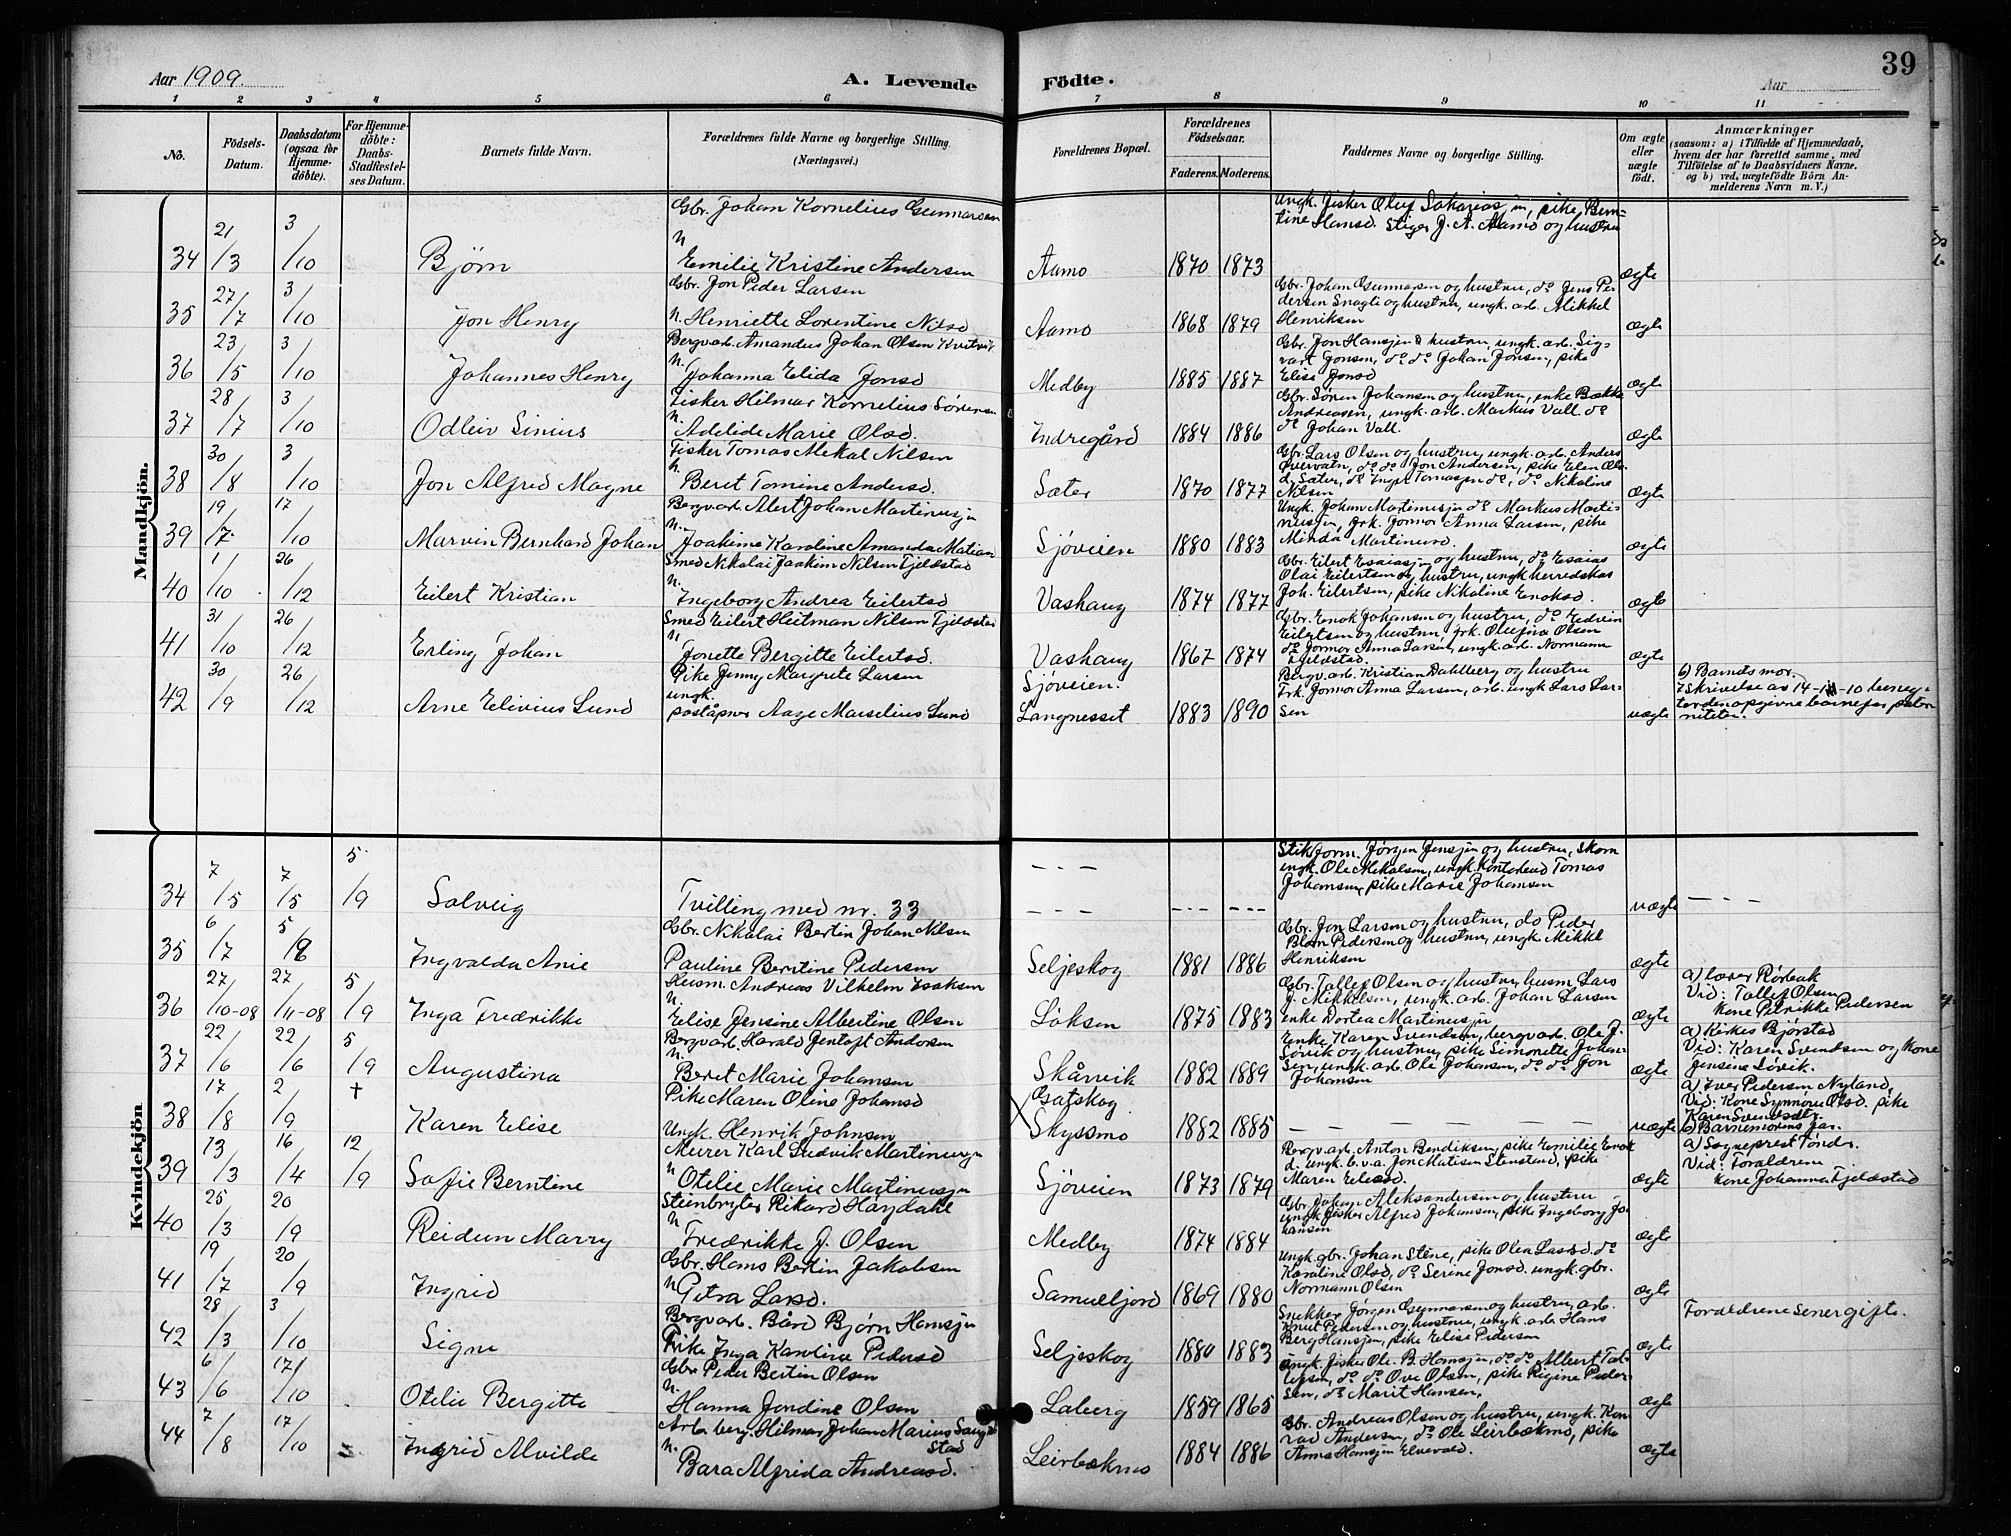 Aar 1909.
A. Levende
Födte.
Aar
39
1 2 3 4 5 6 7 8 9 10 11
No.
Födsels-
Datum.
Daabsdatum
(ogsaa for
Hjemme-
döbte).
For Hjemme-
döbte:
Daabs-
Stadfæstel-
ses Datum.
Barnets fulde Navn.
Forældrenes fulde Navne og borgerlige Stilling.
(Næringsvei.)
Forældrenes Bopæl.
Forældrenes
Födselsaar.
Faderens.
Moderens.
Faddernes Navne og borgerlige Stilling.
Om ægte
eller
uægte
födt.
Anmærkninger
(saasom: a) i Tilfælde af Hjemmedaab,
hvem der har forrettet samme, med
Tilföielse af to Daabsvidners Navne.
og b) ved uægtefödte Börn An-
melderens Navn m. V.)
Mandkjön.
34 21/3 3/10 Björn
Gbr. Johan Kornelius Gunnarsen
H.
Emilie Kristine Andersen
Aamo 1870 1873
Ungk. fisker Oluf Sakarias
pike Bern-
tine Hansd. Stiger J. A. Aamo og hustru
ægte
35 27/7 3/10 Jon Henry
Gbr. Jon Peder Larsen
H. Henriette Lorentine Nilsd
Aamo 1868 1879
Gbr. Johan Gunnarsen og hustru, do Jens Pe-
dersen Snagli og hustru, ungk. arb. Mikkel
Henriksen
ægte
36 23/5 3/10 Johannes Henry
Bergvarb. Amandus Johan Olsen Kvitvik
H. Johanna Elida Jonsd
Medby 1885 1887
Gbr. Jon Hansen & hustru, ungk. arb. Sig-
vart Jonsen, do do Johan Jonsen, pike
Elise Jonsd
ægte
37 28/7 3/10 Odleiv Sinius
Fisker Hilmar Kornelius Sörensen
H. Adelide Marie Olsd.
Indregård 1884 1886
Gbr. Sören Johansen og hustru, enke Bække
Andreasen, ungk. arb. Markus Vall do
do Johan Vall.
ægte
38 30/8 3/10 Jon Alfred Magne
Fisker Tomas Mekal Nilsen
H. Beret Tomine Andersd.
Sæter 1870 1877
Gbr. Lars Olsen og hustru, ungk. arb. Anders
Övervatn, do do Jon Andersen, pike Elen Ols-
d. Sæter, do Inger Tomassen do, do Nikoline
Nilsen
ægte
39 19/7 17/10 Marvin Bernhard Johan
Bergvarb. Alert Johan Martinussen
H. Joakime Karoline Amanda Matian
Sjöveien 1880 1883
Ungk. Johan Martinussen do Markus Marti-
nussen, frk. Jormor Anna Larsen, pike
Minda Martinusd.
ægte
40 1/10 26/12 Eilert Kristian
Smed Nikolai Joakim Nilsen Fjeldstad
H. Ingeborg Andrea Eilertsd
Vashaug 1874 1877
Gbr. Eilert Esaiassen og hustru, do Esaias
Olai Eilertsen og hustru, ungk. herredskas
Joh. Eilertsen, pike Nikoline Enoksd.
ægte
41 31/10 26/12 Erling Johan
Smed Eilert Heitman Nilsen Fjeldstad
H. Jonette Bergitte Eilertsd.
Vashaug 1867 1874
Gbr. Enok Johansen og hustru, do Eedvin
Eilertsen og hustru, frk. Olufina Olsen
do Jormor Anna Larsen, ungk. arb. Normann
Fjeldstad.
ægte
42 30/9 26/12 Arne Elivius Lund
Pike Jenny Margrete Larsen
ungk.
poståpner Aage Marselius Lund
Sjöveien.
Langnesset 1883 1890
Bergv. arb. Kristian Dahlberg og hustru
Frk. Jormor Anna Larsen, arb. ungk Lars Lar-
sen
uægte
b) Barnets mor.
I skrivelse av 14-11-10 beneg-
ter den opgivne barnefar pater-
niteten.
Kvindekjön
34 7/5 7/5 5/9 Solveig
Tvilling med nr. 33
Stikform. Jörgen Jenssen og hustru, skom
ungk. Ole Mekalsen, ungk. Kontorbud Tomas
Johansen, pike Marie Johansen
uægte
35 6/7 5/9 Ingvalda Anie
Gbr. Nikolai Bertin Johan Nilsen
Pauline Berntine Pedersen
Seljeskog 1881 1886
Gbr. Jon Larsen og hustru, do Peder
Blom Pedersen og hustru, ungk. Mikkl
Henriksen
ægte
36 27/10-08 27/11-08 5/9 Inga Fredrikke
Husm. Andreas Vilhelm Isaksen
H. Elise Jensine Albertine Olsen
Löksen 1875 1883
Gbr. Tallef Olsen og hustru, husm Lars
J. Mikkelsen, ungk. arb. Johan Larsen
enke Dortea Martinussen
ægte
a) Lærer Rörbak
Vid: Tallef Olsen
kone Petrikke Pedersen
37 22/6 22/6 5/9 Augustina
Bergvarb. Harald Jentoft Andersen
H. Beret Marie Johansen
Skårvik 1882 1889
Enke Karen Svendsen, bergvarb. Ole J.
Sövik og hustru, pike Simonette Johan-
sen, ungk. arb. Ole Johansen, do do Jon
Johansen
ægte
a) Kirkes. Björstad
Vid: Karen Svendsen og kone
Jensine Lövik.
38 17/8 2/9 † Karen Elise
Pike Maren Oline Johansd
Ungk. Henrik Johnsen
Gatskog
Skyssmo 1882 1885
uægte
a) Iver Pedersen Nyland,
Vid: Kone Synnöve Olsd. pike
Karen Svendsdtr.
b) Barnemorens far.
39 13/3 16/4 12/9 Sofie Berntine
Murer Karl Ludvik Martinussen
H. Otelie Marie Martinussen
Sjöveien 1873 1879
Bergvarb. Anton Bendiksen, pike Emilie Enok
d. ungk. b.v.a. Jon Matisen Stenstad, pike
Maren Eliasd.
ægte
a) Sogneprest Tönd.
Vid: Forældrene
kone Johanna Fjeldstad
40 25/3 20/9 Reidun Marry
Steinbryter Rikard Haydahl
H. Fredrikke J. Olsen
Medby 1874 1884
Gbr. Johan Aleksandersen og hustru
ungk. fisker Alfred Johansen, pike Ingeborg Jo-
hansen
ægte
41 19/7 20/9 Ingrid
Gbr. Hans Bertin Jakobsen
H. Petra Larsd.
Samuelfjord 1869 1880
Ungk. gbr. Johan Stene, pike Olea Larsd. do
Karoline Olsd, do Serine Jonsd. ungk. gbr.
Normann Olsen
ægte
42 28/3 3/10 Signe
Bergvarb. Bård Björn Hanssen
Pike Inga Karoline Pedersd
Seljeskog 1880 1883
Snekker Jörgen Gunnarsen og hustru, arb.
Knut Pedersen og hustru, ungk. arb. Hans
Berg Hanssen, pike Elise Pedersen
ægte
Forældrene senere gifte.
43 6/6 17/10 Otelie Bergitte
Gbr. Peder Bertin Olsen
H. Hanna Jondine Olsen
Laberg 1859 1865
Ungk. fisker Ole B. Hanssen, do do Albert Tal-
lefsen, do do Ove Olsen, pike Regine Peder-
sen, do Marit Hansen.
ægte
44 7/8 17/10 Ingrid Alvilde
Arb. berg. Hilmar Johan Marius Saug-
stad
H. Bara Alfrida Andreasd.
Leirbekmo 1884 1886
Gbr. Andreas Olsen og hustru, ungk. Kon-
rad Andersen, do Ole Leirbekmo, pike
Anna Hanssen Elvevold.
ægte